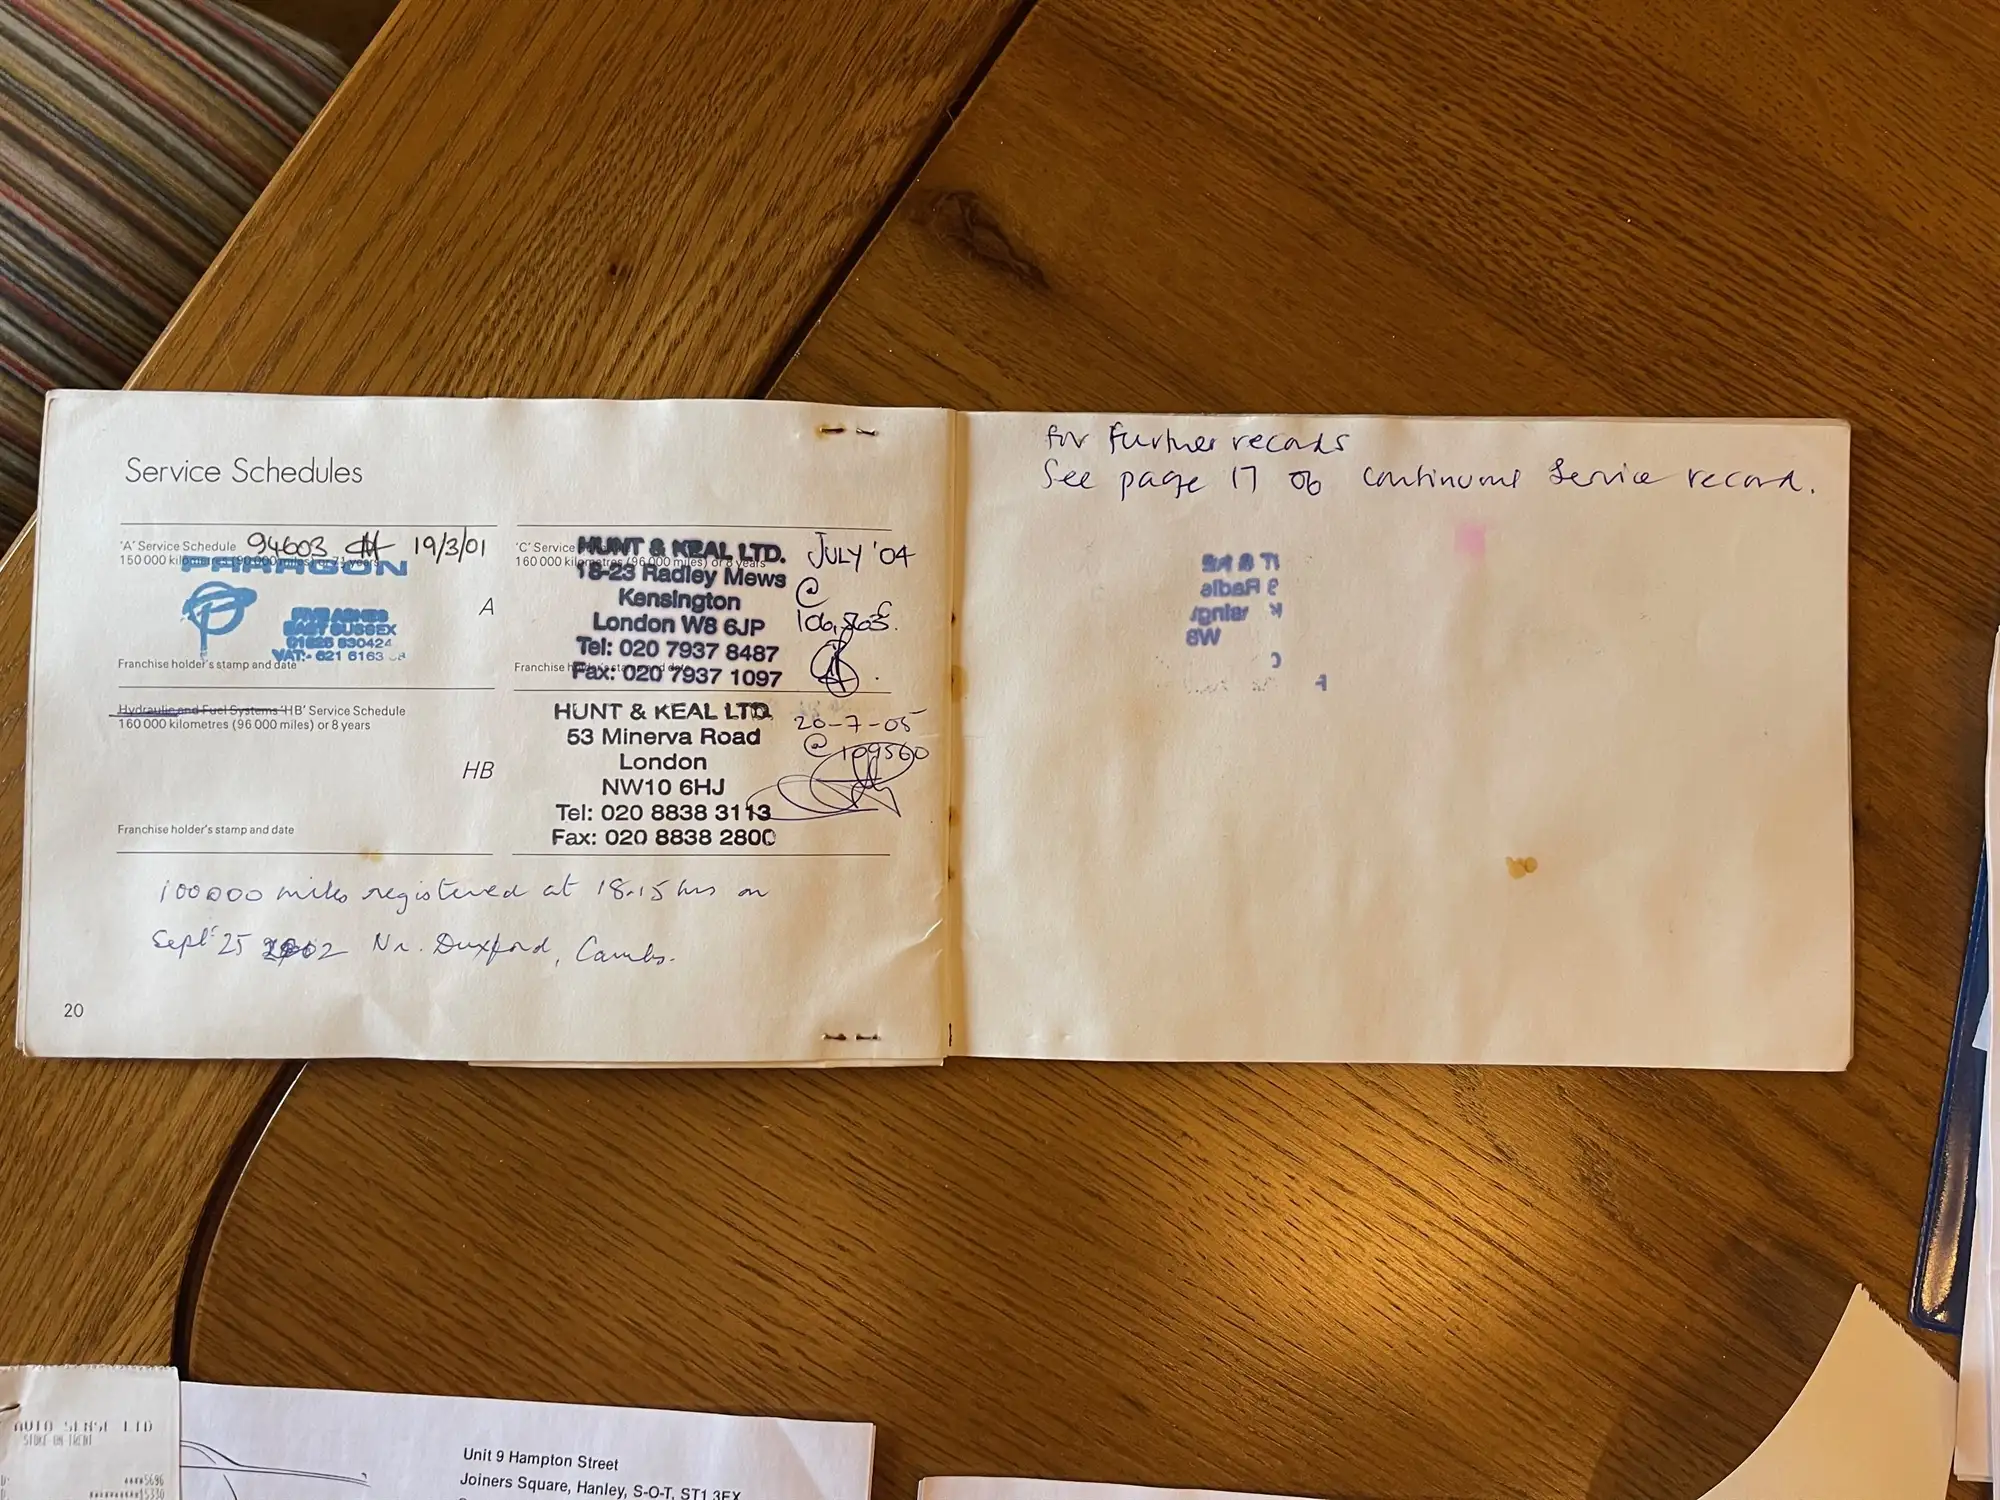 Service Schedules
'A' Service Schedule 94603 19/3/01
150 000 kilometres (90 000 miles) or 7½ years
PARAGON
FIVE ASHES
EAST SUSSEX
01825 830424
VAT:- 621 6163
A
Franchise holder's stamp and date
'C' Service
160 000 kilometres (96 000 miles) or 8 years
HUNT & KEAL LTD.
18-23 Radley Mews
Kensington
London W8 6JP
Tel: 020 7937 8487
Fax: 020 7937 1097
JULY '04
@
106,863.
Franchise holder's stamp and date
Hydraulic and Fuel Systems 'HB' Service Schedule
160 000 kilometres (96 000 miles) or 8 years
HB
Franchise holder's stamp and date
HUNT & KEAL LTD.
53 Minerva Road
London
NW10 6HJ
Tel: 020 8838 3113
Fax: 020 8838 2800
20-7-05
@ 109560
100000 miles registered at 18.15 hrs on
Sept 25 2002 Nr. Duxford, Cambs.
20
for further records
See page 17 of continuous Service record.
AUTO SENSE LTD
STOKE ON TRENT
****5696
Unit 9 Hampton Street
Joiners Square, Hanley, S-O-T, ST1 3EX